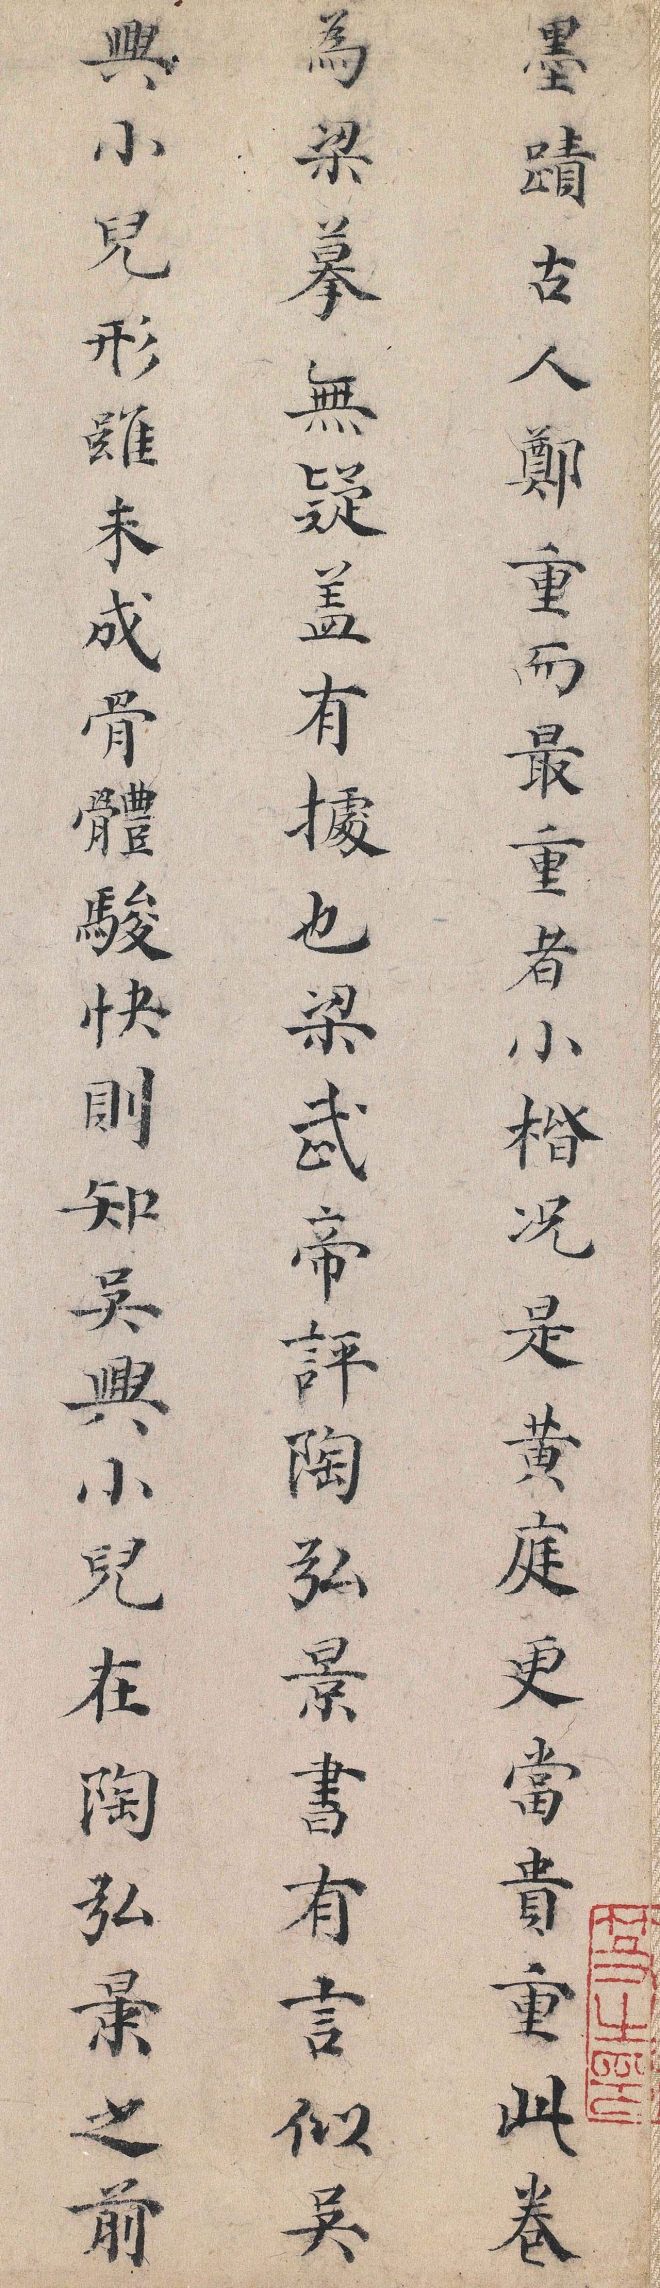 墨蹟古人鄭重而最重者小楷况是黄庭更當貴重此卷
為梁摹無疑盖有據也梁武帝評陶弘景書有言似吴
興小兒形雖未成骨體駿快則知吴興小兒在陶弘景之前